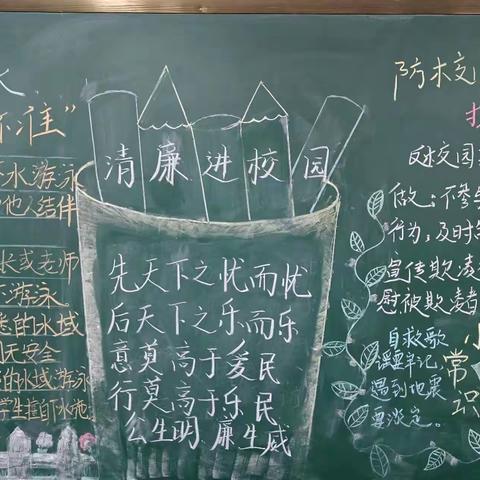 水
不准”
下水游泳
他人结伴
长或老师
下游泳
悉的水域
无安全
的水域游泳
学生擅自下水施
清廉进校园
先天下之忧而忧
后天下之乐而乐
意莫高于爱民
行莫高于乐民
公生明 廉生威
防校
反校园
做：不参
行为，及时
宣传欺凌
慰被欺凌者
自救歌
谣要牢记，
遇到地震
要淡定。
小常识